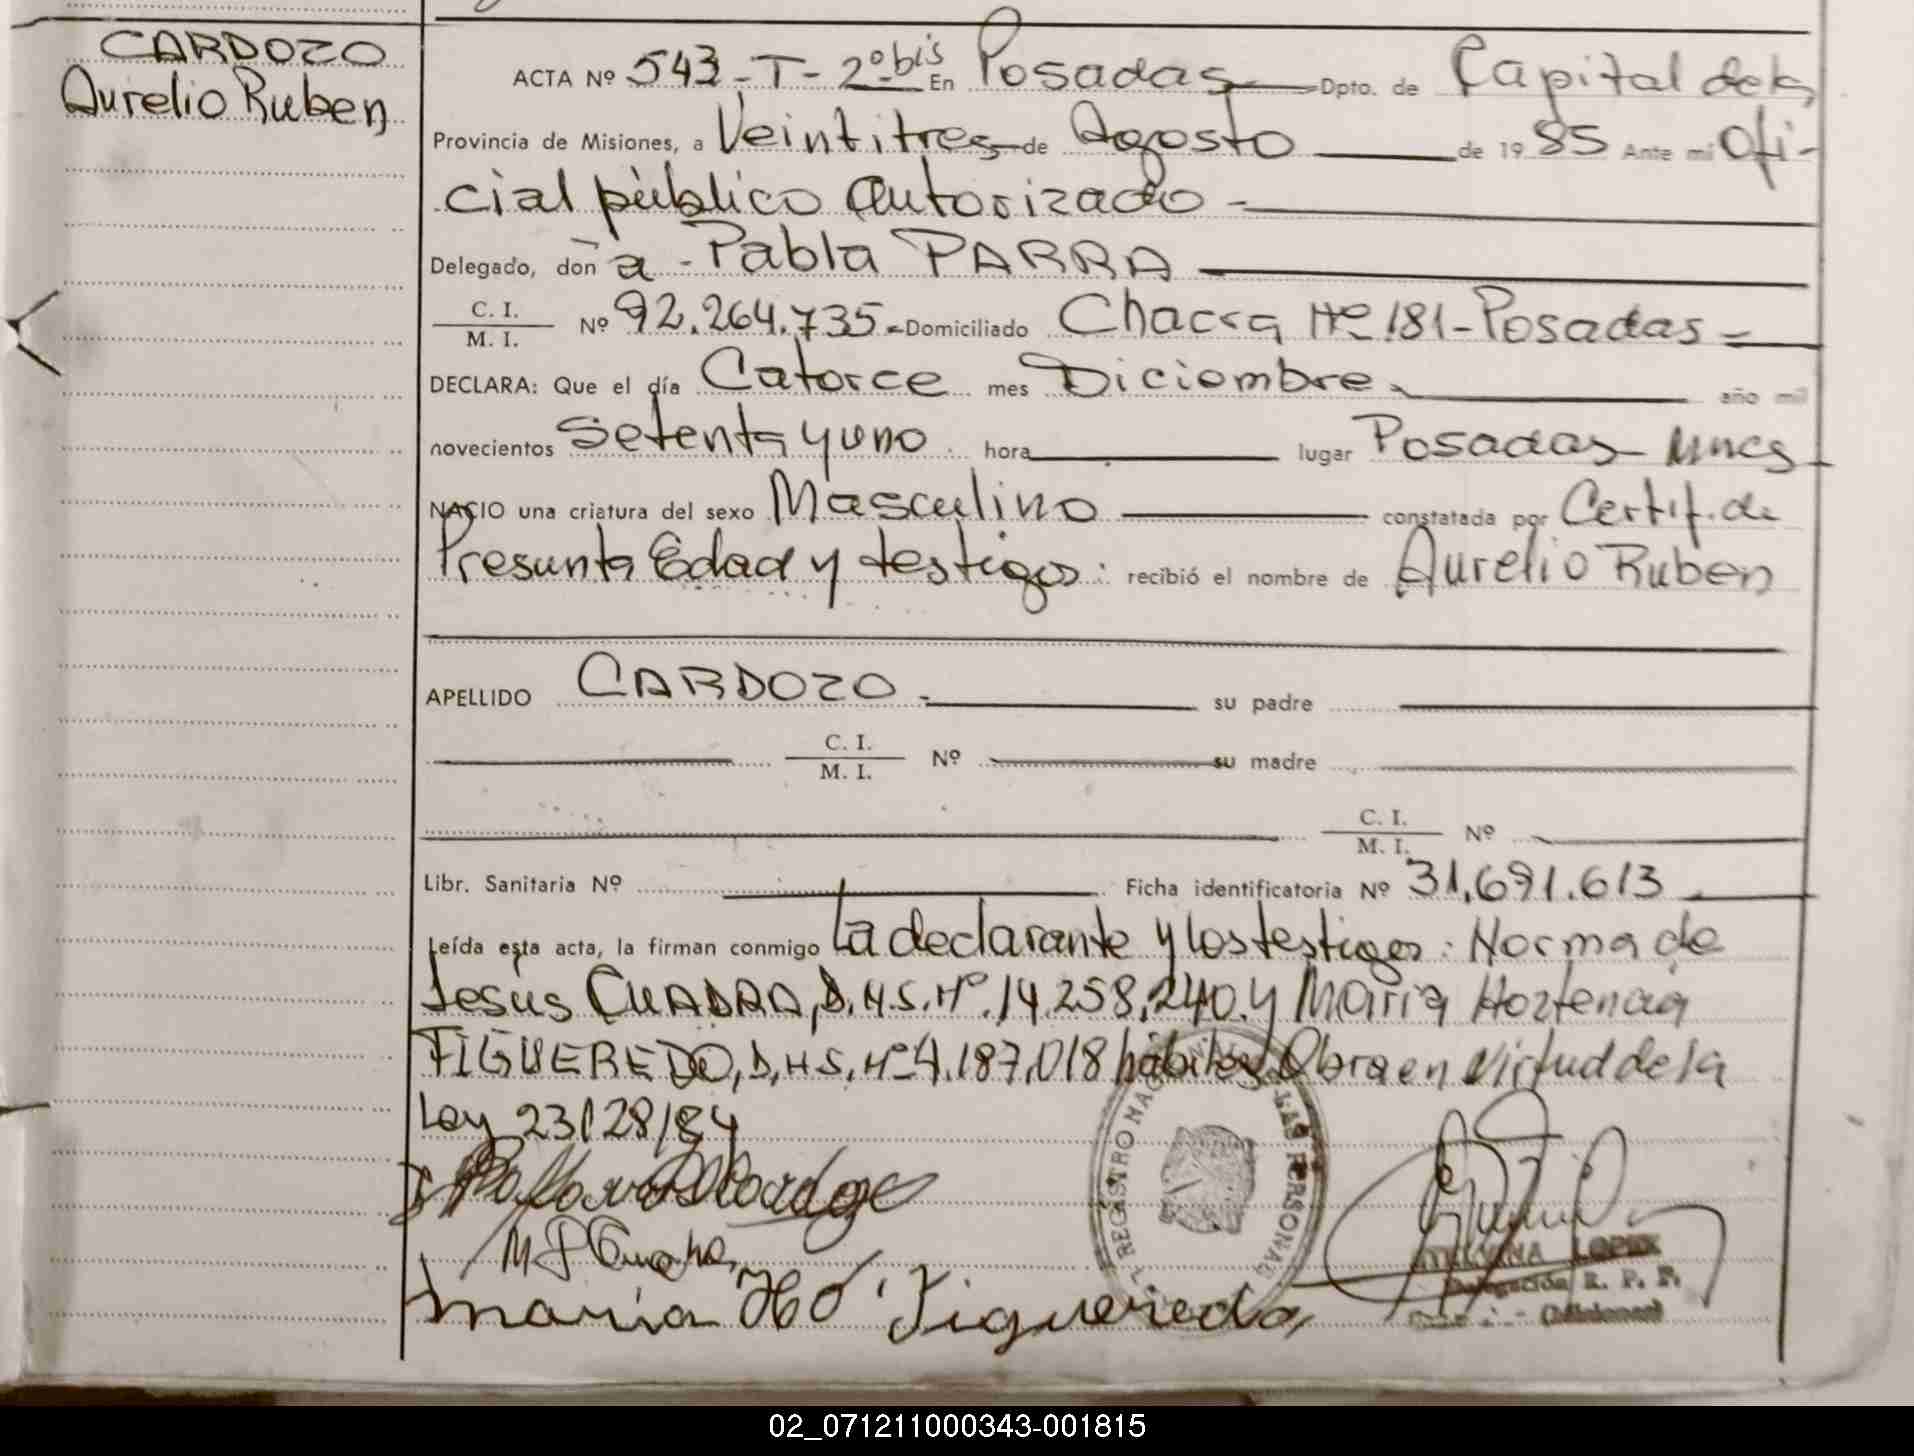 CARDOZO
Aurelio Ruben
ACTA Nº 543-T-2º bis En Posadas Dpto. de Capital de la
Provincia de Misiones, a Veintitres de Agosto de 1985 Ante mi Ofi-
cial público autorizado -
Delegado, don a - Pabla PARRA
C. I.
M. I. Nº 92.264.735.- Domiciliado Chacra Nº 181 - Posadas -
DECLARA: Que el día Catorce mes Diciembre. año mil
novecientos Setenta y uno hora lugar Posadas Mnes
NACIO una criatura del sexo Masculino constatada por Certif. de
Presunta Edad y testigos: recibió el nombre de Aurelio Ruben
APELLIDO CARDOZO. su padre
C. I.
M. I. Nº su madre
C. I.
M. I. Nº
Libr. Sanitaria Nº Ficha identificatoria Nº 31.691.613
Leída esta acta, la firman conmigo La declarante y los testigos: Norma de
Jesus CUADRA, D.N.S. Nº. 14.258.240. y Maria Hortencia
FIGUEREDO, D.N.S. Nº 4.187.018 hábiles. Obra en Virtud de la
Ley 23128/84
REGISTRO NAC LAS PERSONAS
Maria Figueredo
LOPEZ
Delegación R. P. P.
(Misiones)
02_071211000343-001815